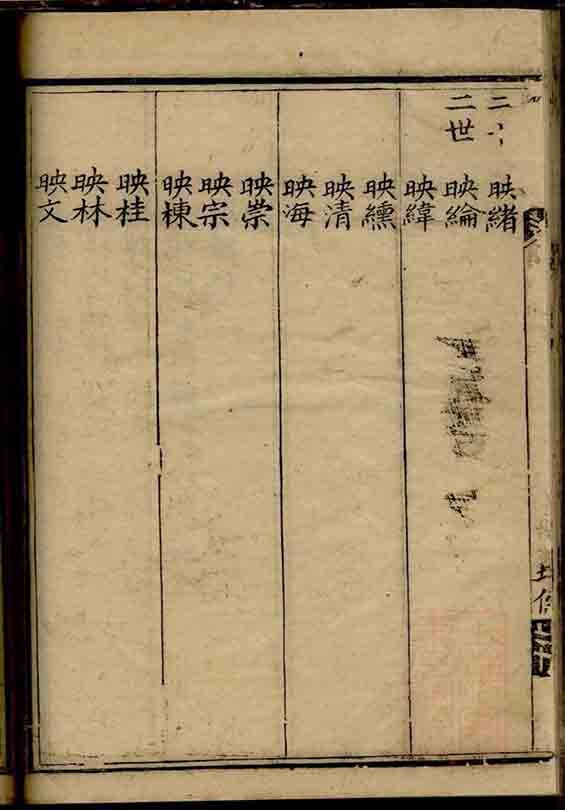 二十
二世
映緒
映綸
映緯
映纁
映清
映海
映崇
映宗
映棟
映桂
映林
映文